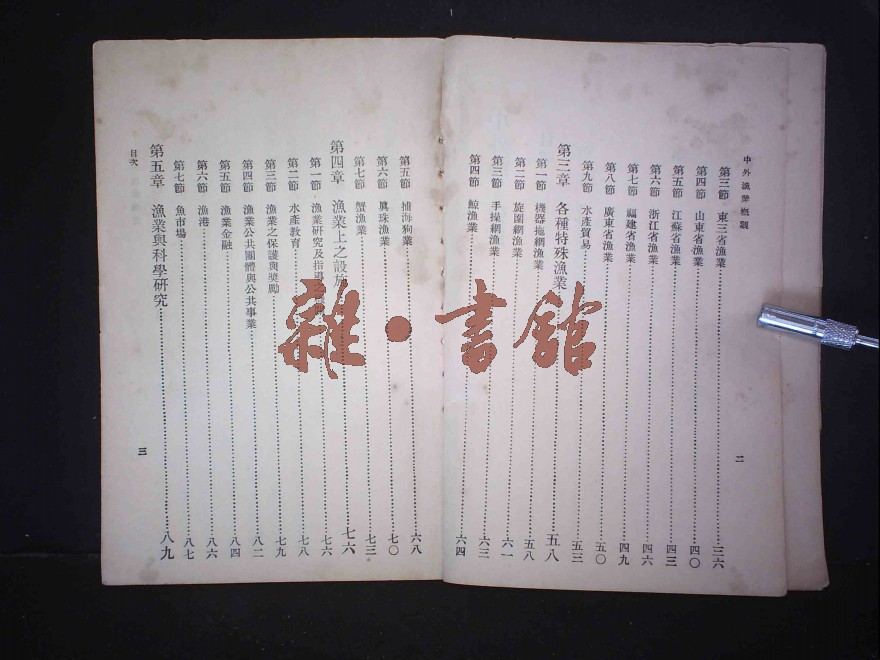 中外漁業概觀
第三節 東三省漁業……三六
第四節 山東省漁業……四〇
第五節 江蘇省漁業……四三
第六節 浙江省漁業……四六
第七節 福建省漁業……四九
第八節 廣東省漁業……五〇
第九節 水產貿易……五三
第三章 各種特殊漁業……五八
第一節 機器拖網漁業……五八
第二節 旋圍網漁業……六一
第三節 手操網漁業……六三
第四節 鯨漁業……六四
二
第五節 捕海狗業……六八
第六節 眞珠漁業……七〇
第七節 蟹漁業……七三
第四章 漁業上之設施……七六
第一節 漁業研究及指導之……七六
第二節 水產教育……七六
第三節 漁業之保護與獎勵……七九
第四節 漁業公共團體與公共事業……八二
第五節 漁業金融……八四
第六節 漁港……八六
第七節 魚市場……八七
第五章 漁業與科學研究……八九
目次
三
雜·書館